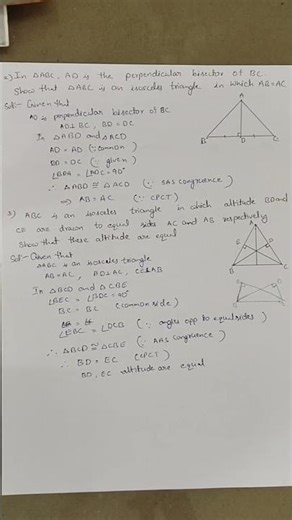 2) In △ABC, AD is the perpendicular bisector of BC.
Show that △ABC is an isosceles triangle in which AB=AC
Sol:- Given that
AD is perpendicular bisector of BC
AD⊥BC, BD = DC
In △ABD and △ACD
AD = AD (∵ common)
BD = DC (∵ given)
∠BDA = ∠ADC = 90°
∴ △ABD ≅ △ACD (∵ SAS congruence)
⇒ AB = AC (∵ CPCT)
A
B
D
C
3) ABC is an isosceles triangle in which altitude BD and
CE are drawn to equal sides AC and AB respectively
Show that these altitude are equal
Sol:- Given that
△ABC is an isosceles triangle
AB=AC, BD⊥AC, CE⊥AB
In △BCD and △CBE
∠BEC = ∠BDC = 90°
BC = BC (common side)
∠EBC = ∠DCB (∵ angles opp to equal sides)
∴ △BCD ≅ △CBE (∵ AAS congruence)
∴ BD = EC (CPCT)
BD, EC altitude are equal
A
E
D
B
C
E
D
B
C